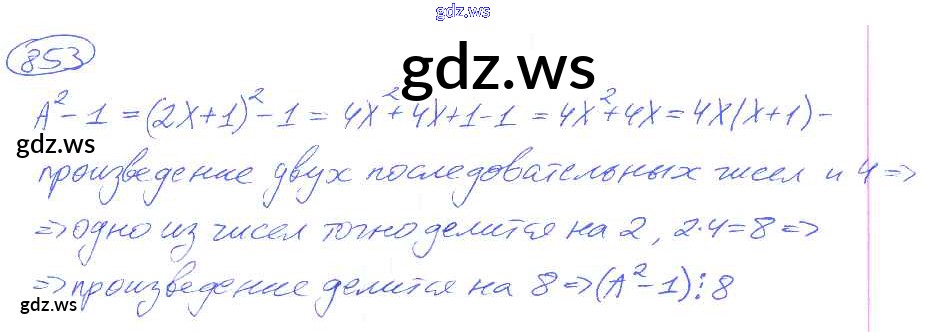 gdz.ws
853
gdz.ws
A² - 1 = (2X+1)² - 1 = 4X²+4X+1-1 = 4X²+4X = 4X(X+1) -
gdz.ws
произведение двух последовательных чисел и 4 =>
=> одно из чисел точно делится на 2, 2·4=8 =>
=> произведение делится на 8 => (A² - 1)⋮8
gdz.ws